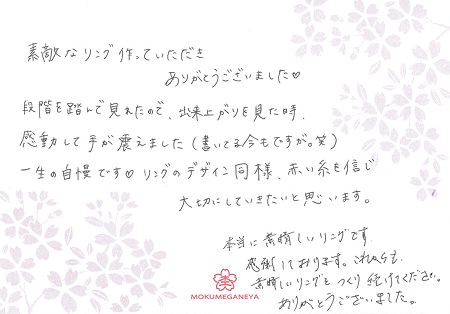 素敵なリング作っていただき
ありがとうございました♡
段階を踏んで見れたので、出来上がりを見た時、
感動して手が震えました(書いてる今もですが。笑)
一生の自慢です♡ リングのデザイン同様、赤い糸を信じ
大切にしていきたいと思います。
本当に素晴しいリングです。
感謝しております。これからも
素晴しいリングをつくり続けてください。
ありがとうございました。
MOKUMEGANEYA